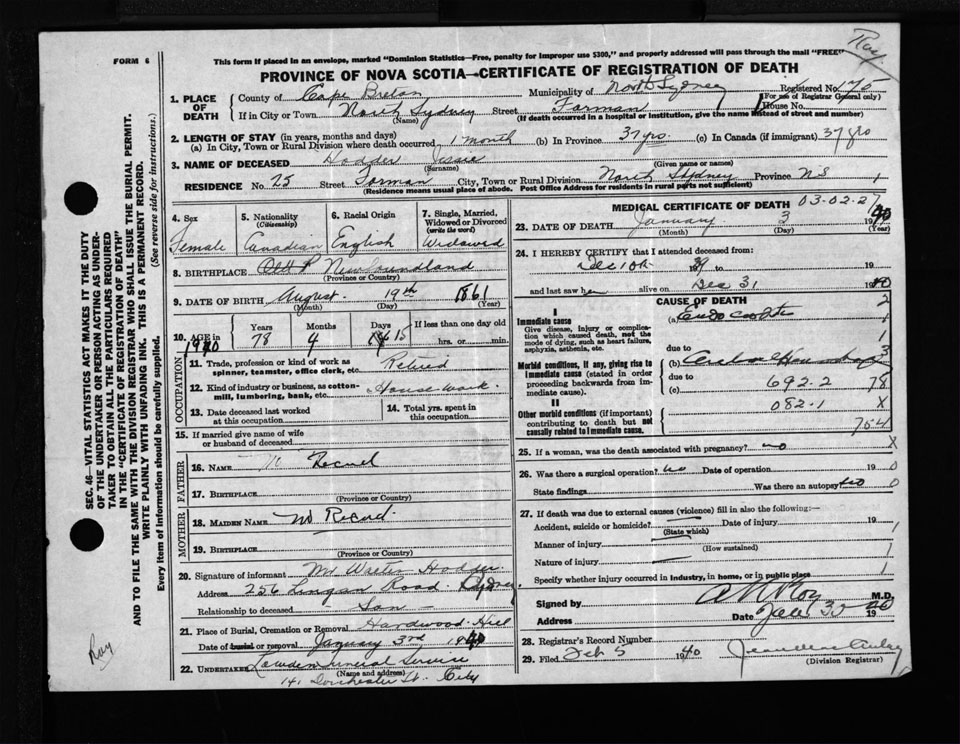 Ray
FORM 6
This form if placed in an envelope, marked "Dominion Statistics—Free, penalty for improper use $300," and properly addressed will pass through the mail "FREE"
PROVINCE OF NOVA SCOTIA—CERTIFICATE OF REGISTRATION OF DEATH
Registered No. 175
(For use of Registrar General only)
1. PLACE OF DEATH
County of Cape Breton Municipality of North Sydney
If in City or Town North Sydney Street Forman House No.
(Name) (If death occurred in a hospital or institution, give the name instead of street and number)
2. LENGTH OF STAY (in years, months and days)
(a) In City, Town or Rural Division where death occurred 1 month (b) In Province 37 yrs. (c) In Canada (if immigrant) 37 yrs
3. NAME OF DECEASED Hodder Jessie
(Surname) (Given name or names)
RESIDENCE No. 25 Street Forman City, Town or Rural Division North Sydney Province N S
(Residence means usual place of abode. Post Office Address for residents in rural parts not sufficient)
4. Sex
Female
5. Nationality
(Citizenship)
Canadian
6. Racial Origin
English
7. Single, Married, Widowed or Divorced
(write the word)
Widowed
8. BIRTHPLACE Newfoundland
(Province or Country)
9. DATE OF BIRTH August 19th 1861
(Month) (Day) (Year)
10. AGE in
1940
Years Months Days If less than one day old
78 4 15 hrs. or min.
OCCUPATION
11. Trade, profession or kind of work as
spinner, teamster, office clerk, etc. Retired
12. Kind of industry or business, as cotton-
mill, lumbering, bank, etc. House Work
13. Date deceased last worked
at this occupation
14. Total yrs. spent in
this occupation
15. If married give name of wife
or husband of deceased
FATHER
16. NAME No Record
17. BIRTHPLACE
(Province or Country)
MOTHER
18. MAIDEN NAME No Record.
19. BIRTHPLACE
(Province or Country)
20. Signature of informant Mr Walter Hodder
Address 256 Lingan Road Sydney
Relationship to deceased Son
21. Place of Burial, Cremation or Removal Hardwood Hill
Date of burial or removal January 3rd 1940
22. UNDERTAKER Funeral Service
(Name and address)
141 Dorchester St. City
MEDICAL CERTIFICATE OF DEATH 03-02-27
23. DATE OF DEATH January 3 1940
(Month) (Day) (Year)
24. I HEREBY CERTIFY that I attended deceased from:
Dec 10th 1939 19
and last saw her alive on Dec 31 19
CAUSE OF DEATH
I
Immediate cause
Give disease, injury or complication which caused death, not the mode of dying, such as heart failure, asphyxia, asthenia, etc.
(a)
due to
Morbid conditions, if any, giving rise to immediate cause (stated in order proceeding backwards from immediate cause).
(b)
due to
(c) 692.2
II
082.1
Other morbid conditions (if important) contributing to death but not causally related to immediate cause.
2
1
1
3
78
X
754
25. If a woman, was the death associated with pregnancy? no X
26. Was there a surgical operation? No Date of operation 19 0
State findings Was there an autopsy? No 0
27. If death was due to external causes (violence) fill in also the following:—
Accident, suicide or homicide? Date of injury 19
(State which)
Manner of injury
(How sustained)
Nature of injury
Specify whether injury occurred in industry, in home, or in public place
Signed by M.D.
Address Date 19
28. Registrar's Record Number
29. Filed Feb 5 1940
(Division Registrar)
SEC. 46—VITAL STATISTICS ACT MAKES IT THE DUTY
OF THE UNDERTAKER OR PERSON ACTING AS UNDER-
TAKER TO OBTAIN ALL THE PARTICULARS REQUIRED
IN THE "CERTIFICATE OF REGISTRATION OF DEATH"
AND TO FILE THE SAME WITH THE DIVISION REGISTRAR WHO SHALL ISSUE THE BURIAL PERMIT.
WRITE PLAINLY WITH UNFADING INK. THIS IS A PERMANENT RECORD.
Every item of information should be carefully supplied. (See reverse side for instructions.)
Ray